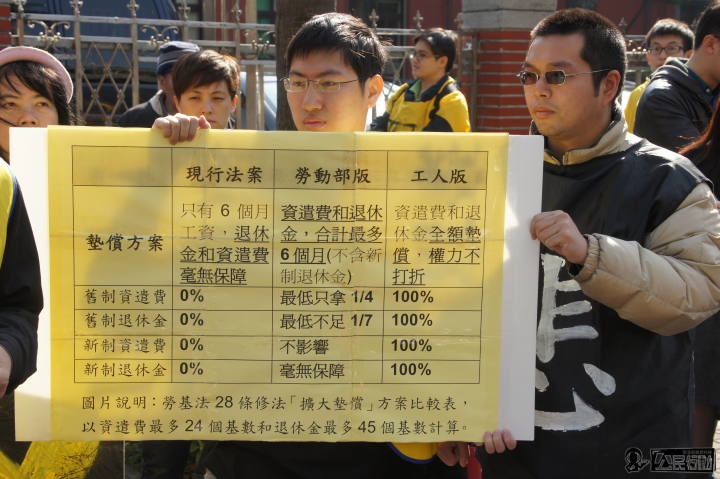 現行法案 勞動部版 工人版
墊償方案
只有 6 個月
工資，退休
金和資遣費
毫無保障
資遣費和退休
金，合計最多
6 個月(不含新
制退休金)
資遣費和退
休金全額墊
償，權力不
打折
舊制資遣費 0% 最低只拿 1/4 100%
舊制退休金 0% 最低不足 1/7 100%
新制資遣費 0% 不影響 100%
新制退休金 0% 毫無保障 100%
圖片說明：勞基法 28 條修法「擴大墊償」方案比較表，
以資遣費最多 24 個基數和退休金最多 45 個基數計算。
公民行動